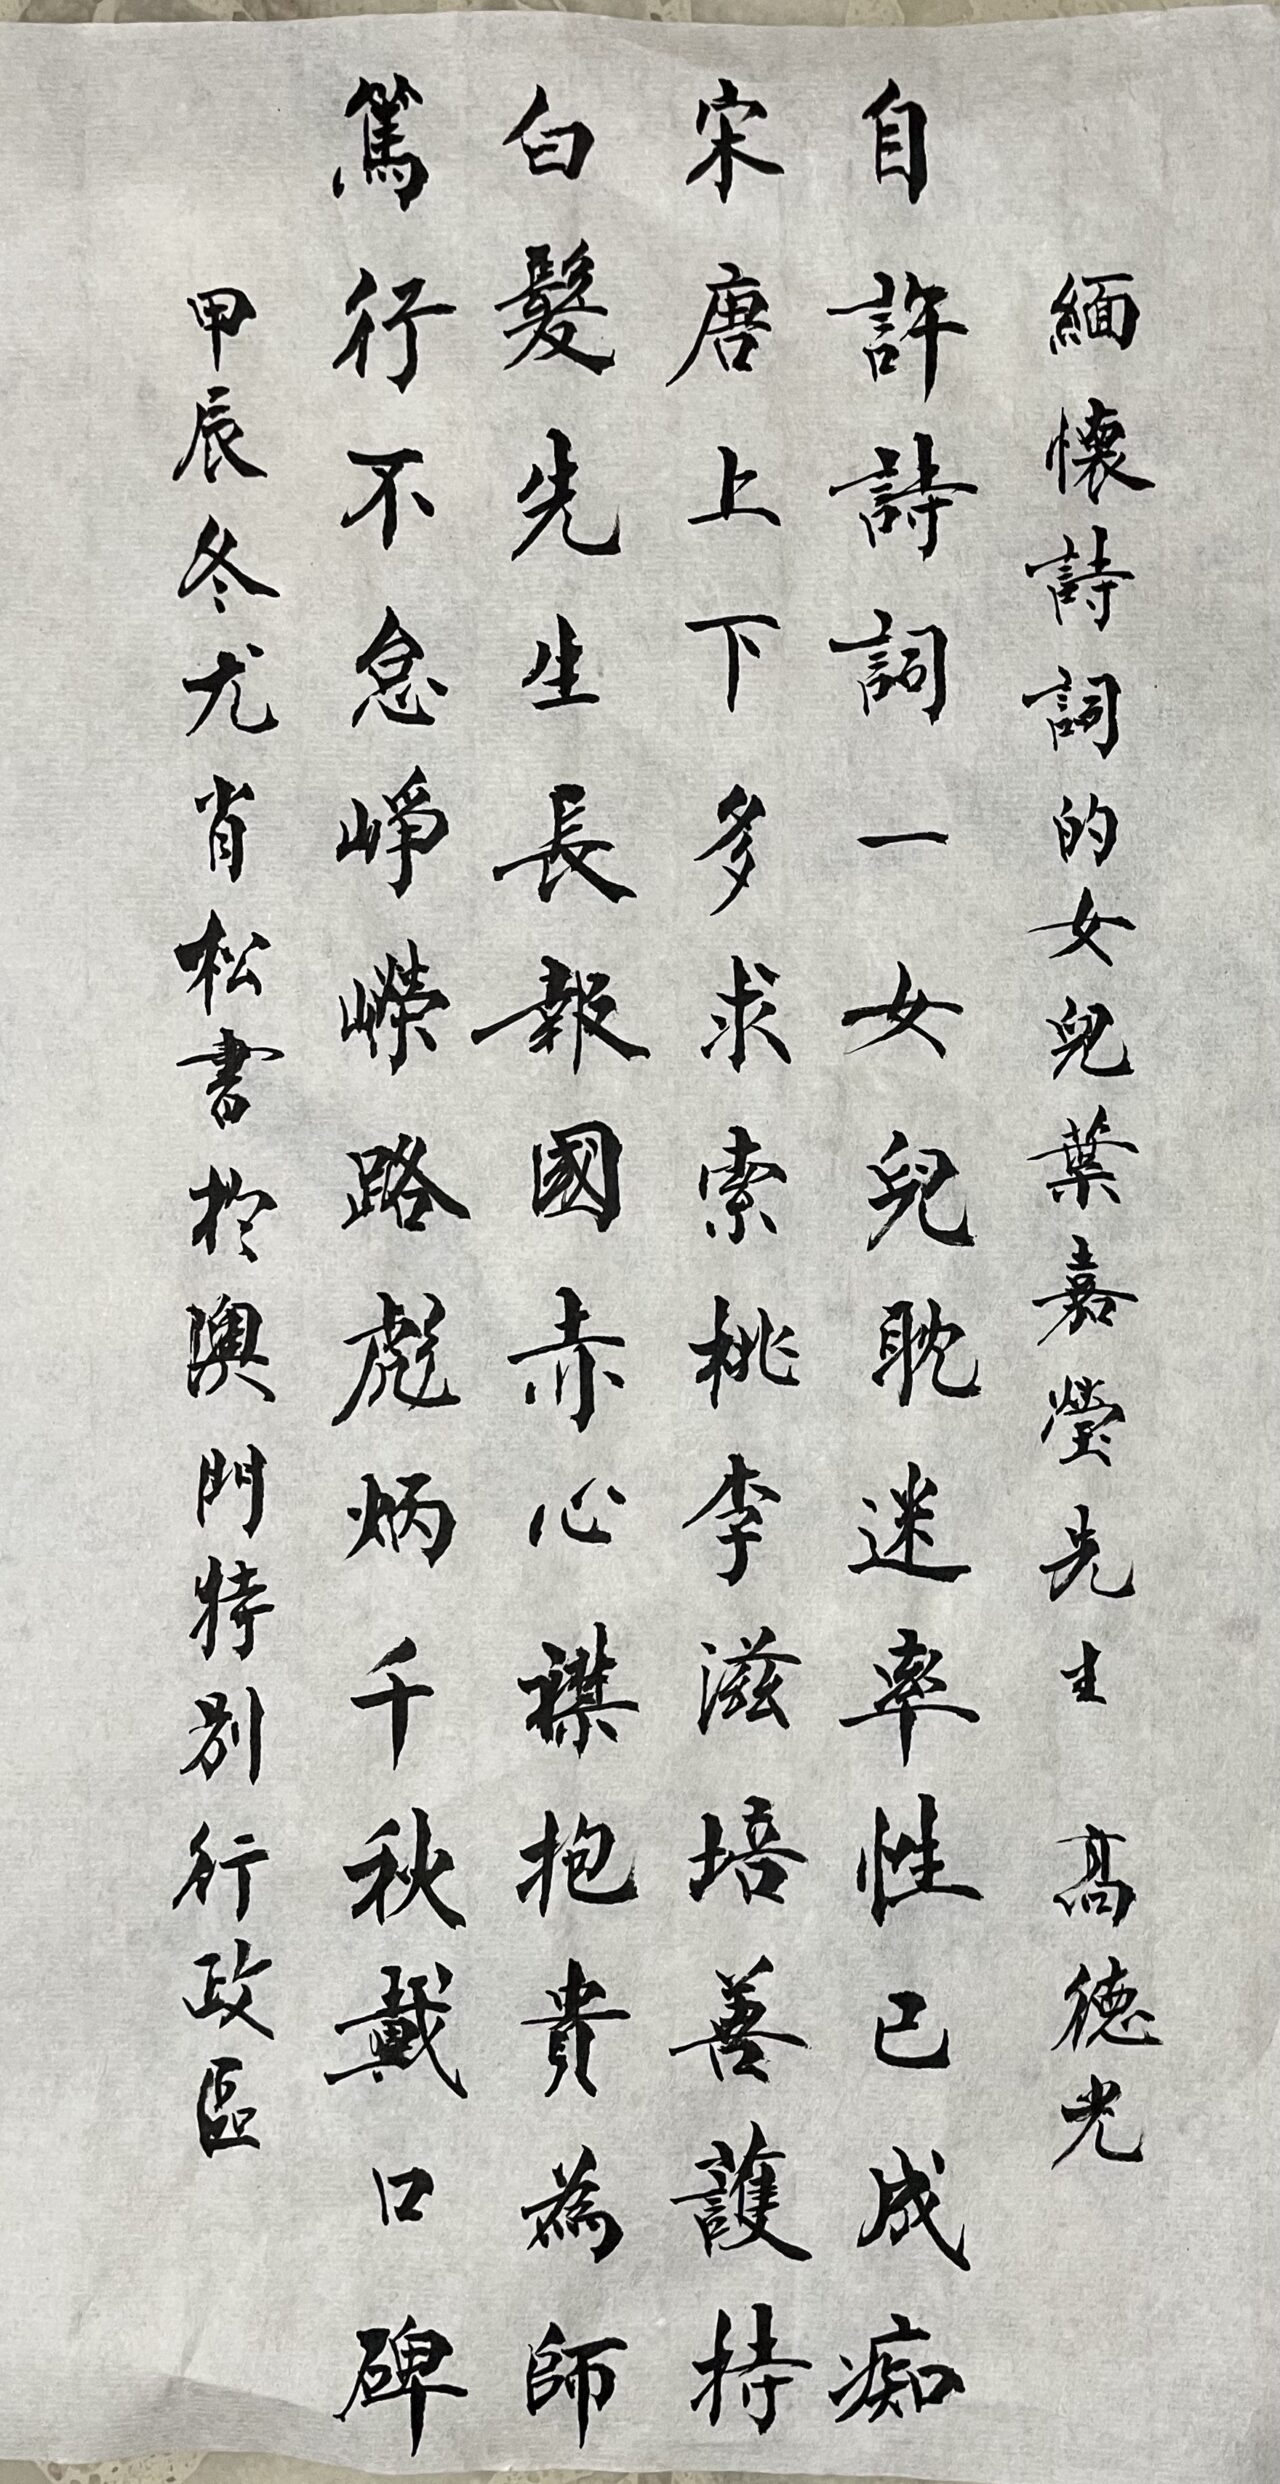 緬懷詩詞的女兒葉嘉瑩先生 高德光
自許詩詞一女兒耽迷率性已成痴
宋唐上下多求索桃李滋培善護持
白髮先生長報國赤心襟抱貴為師
篤行不怠崢嶸路彪炳千秋戴口碑
甲辰冬尤肖松書於澳門特別行政區